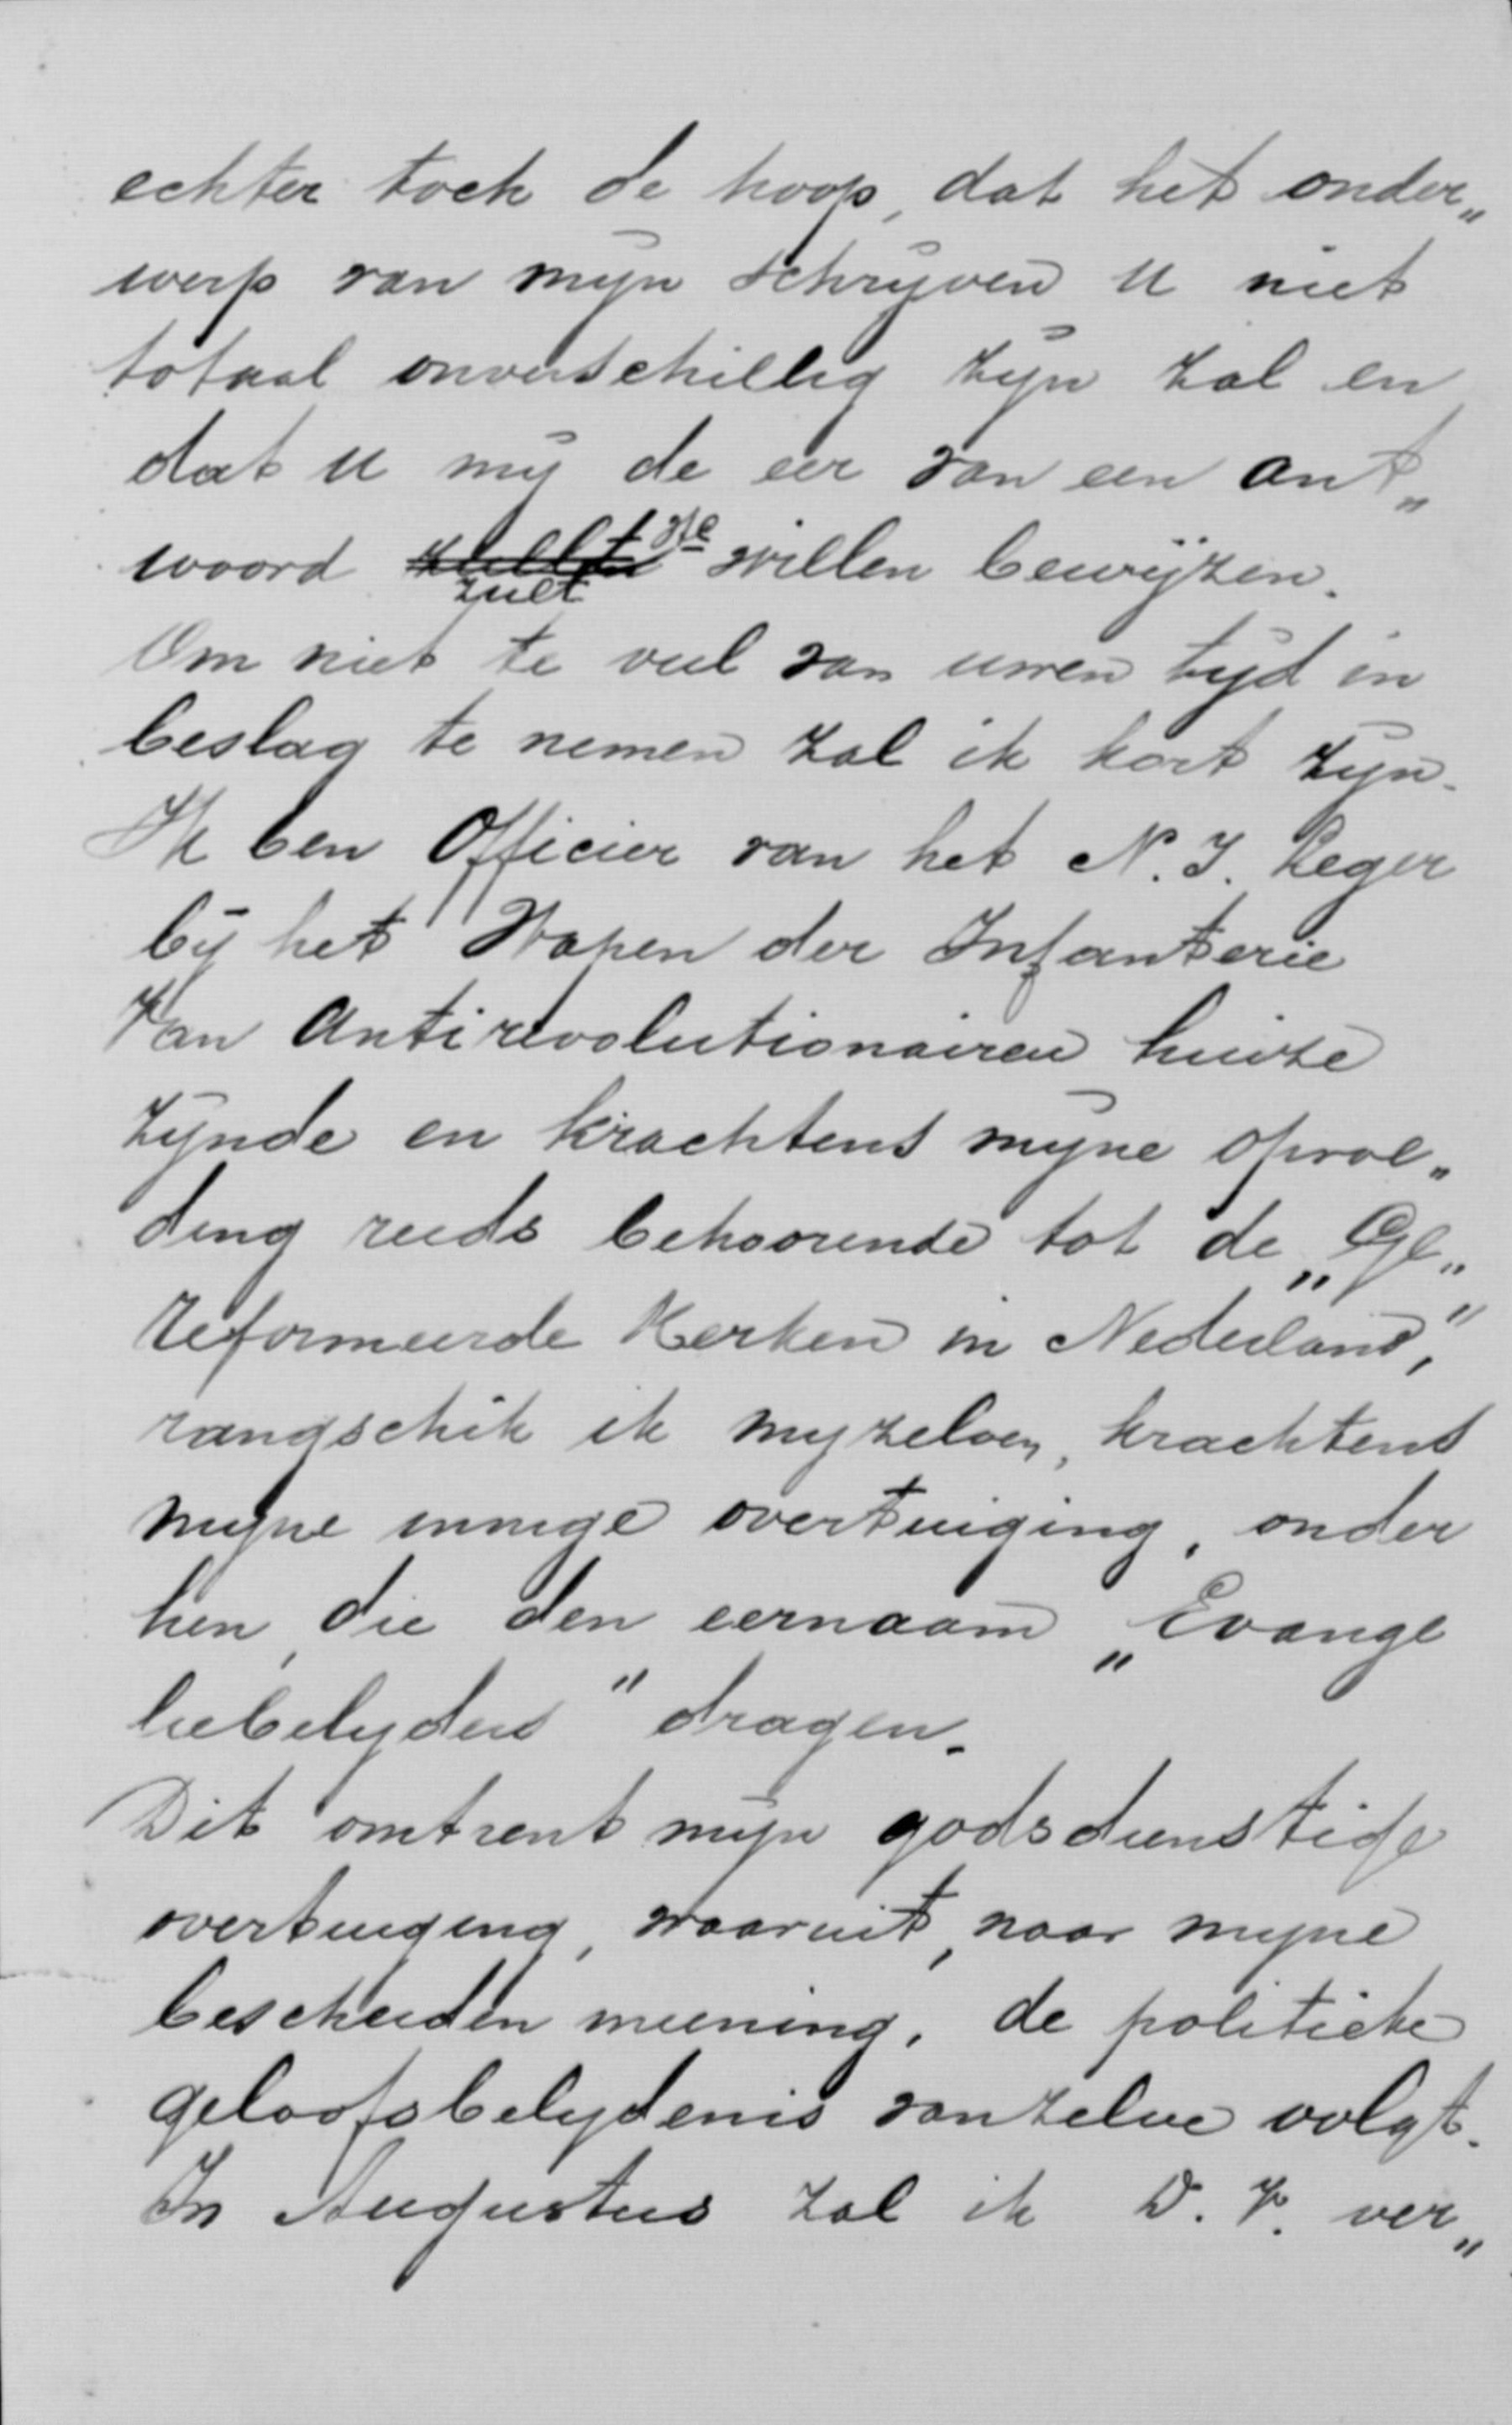 echter toch de hoop, dat het onder„
werp van mijn schrijven U niet
totaal onverschillig zijn zal en
dat U mij de eer van een ant„
woord zult willen bewijzen.
Om niet te veel van uwen tijd in
beslag te nemen zal ik kort zijn.
Ik ben Officier van het N. I. Leger
bij het Wapen der Infanterie
Van Antirevolutionairen huize
zijnde en krachtens mijne opvoe„
ding reeds behoorende tot de „Ge„
reformeerde Kerken in Nederland,"
rangschik ik mijzelven, krachtens
mijne innige overtuiging, onder
hen, die den eernaam „Evange
liebelijders" dragen.
Dit omtrent mijn godsdienstige
overtuiging, waaruit, naar mijne
bescheiden meening, de politieke
geloofsbelijdenis vanzelve volgt.
In Augustus zal ik D. V. ver„